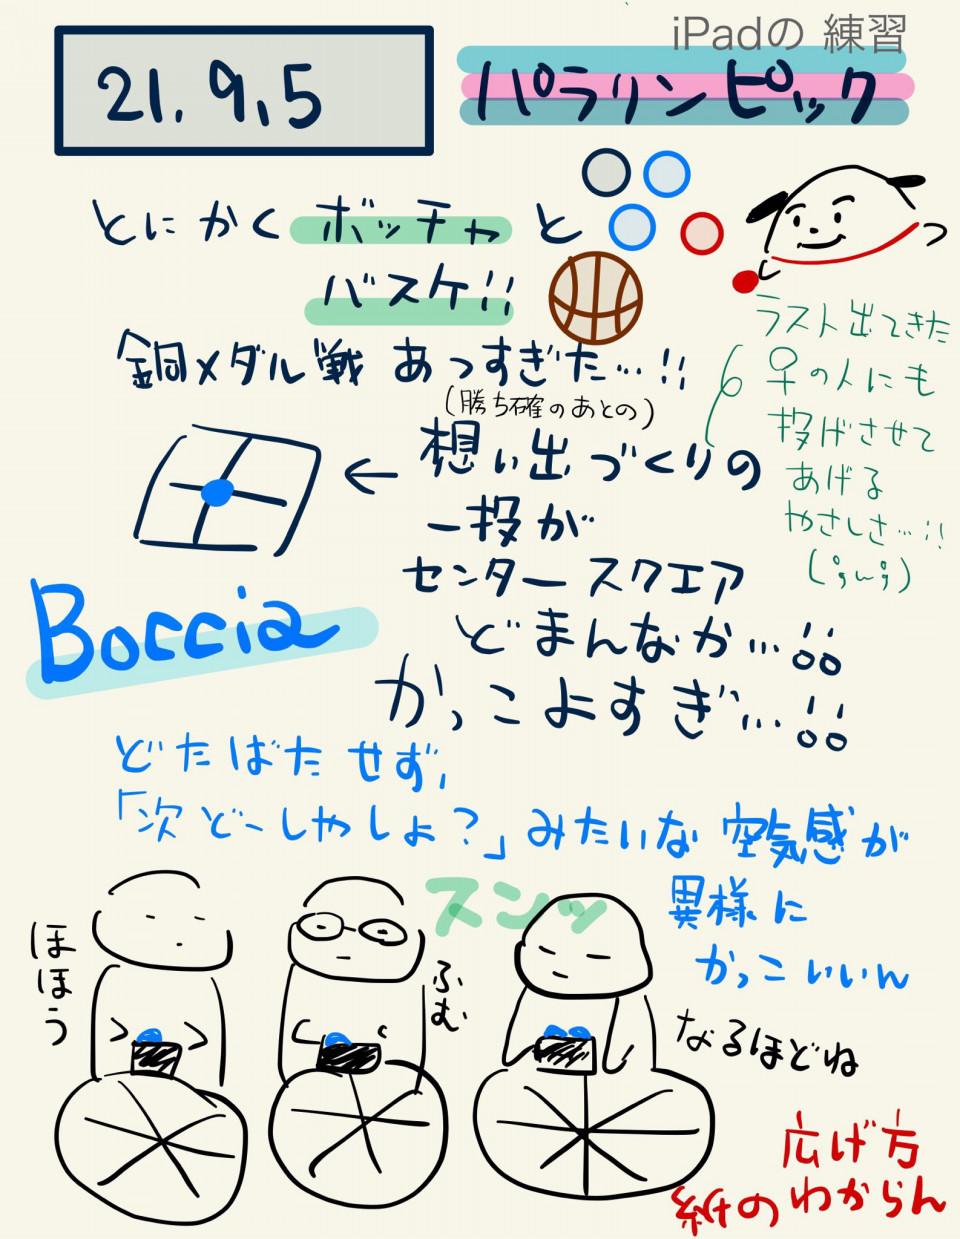 iPadの 練習
21.9.5
パラリンピック
とにかく ボッチャ と
バスケ!!
銅メダル戦 あつすぎた…!!
(勝ち確のあとの)
想い出づくりの
一投が
センタースクエア
どまんなか…!!
かっこよすぎ…!!
ラスト出てきた
♀の人にも
投げさせて
あげる
やさしさ…!!
Boccia
どたばたせず、
「次どーしやしょ?」みたいな 空気感が
異様に
かっこいいん
スンッ
ほほう
ふむ
なるほどね
紙の広げ方
わからん